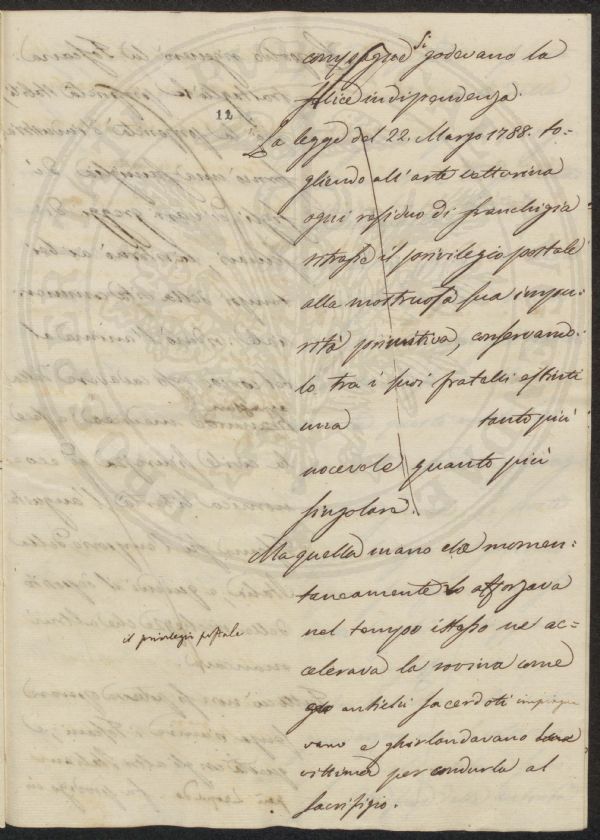 compagne si godevano la
felice indipendenza.
12
La legge del 22. Marzo 1788. to-
gliendo all'arte vetturina
ogni residuo di franchigia
ritrasse il privilegio postale
alla mostruosa sua impu-
rità primitiva, conservando-
lo tra i suoi fratelli estinti
una tanto più
nocevole quanto più
singolare.
Ma quella mano che momen-
taneamente lo afforzava
nel tempo istesso ne ac-
il privilegio postale
celerava la rovina come
gli antichi sacerdoti impingua
vano e ghirlandavano
vittima per condurla al
sacrifizio.